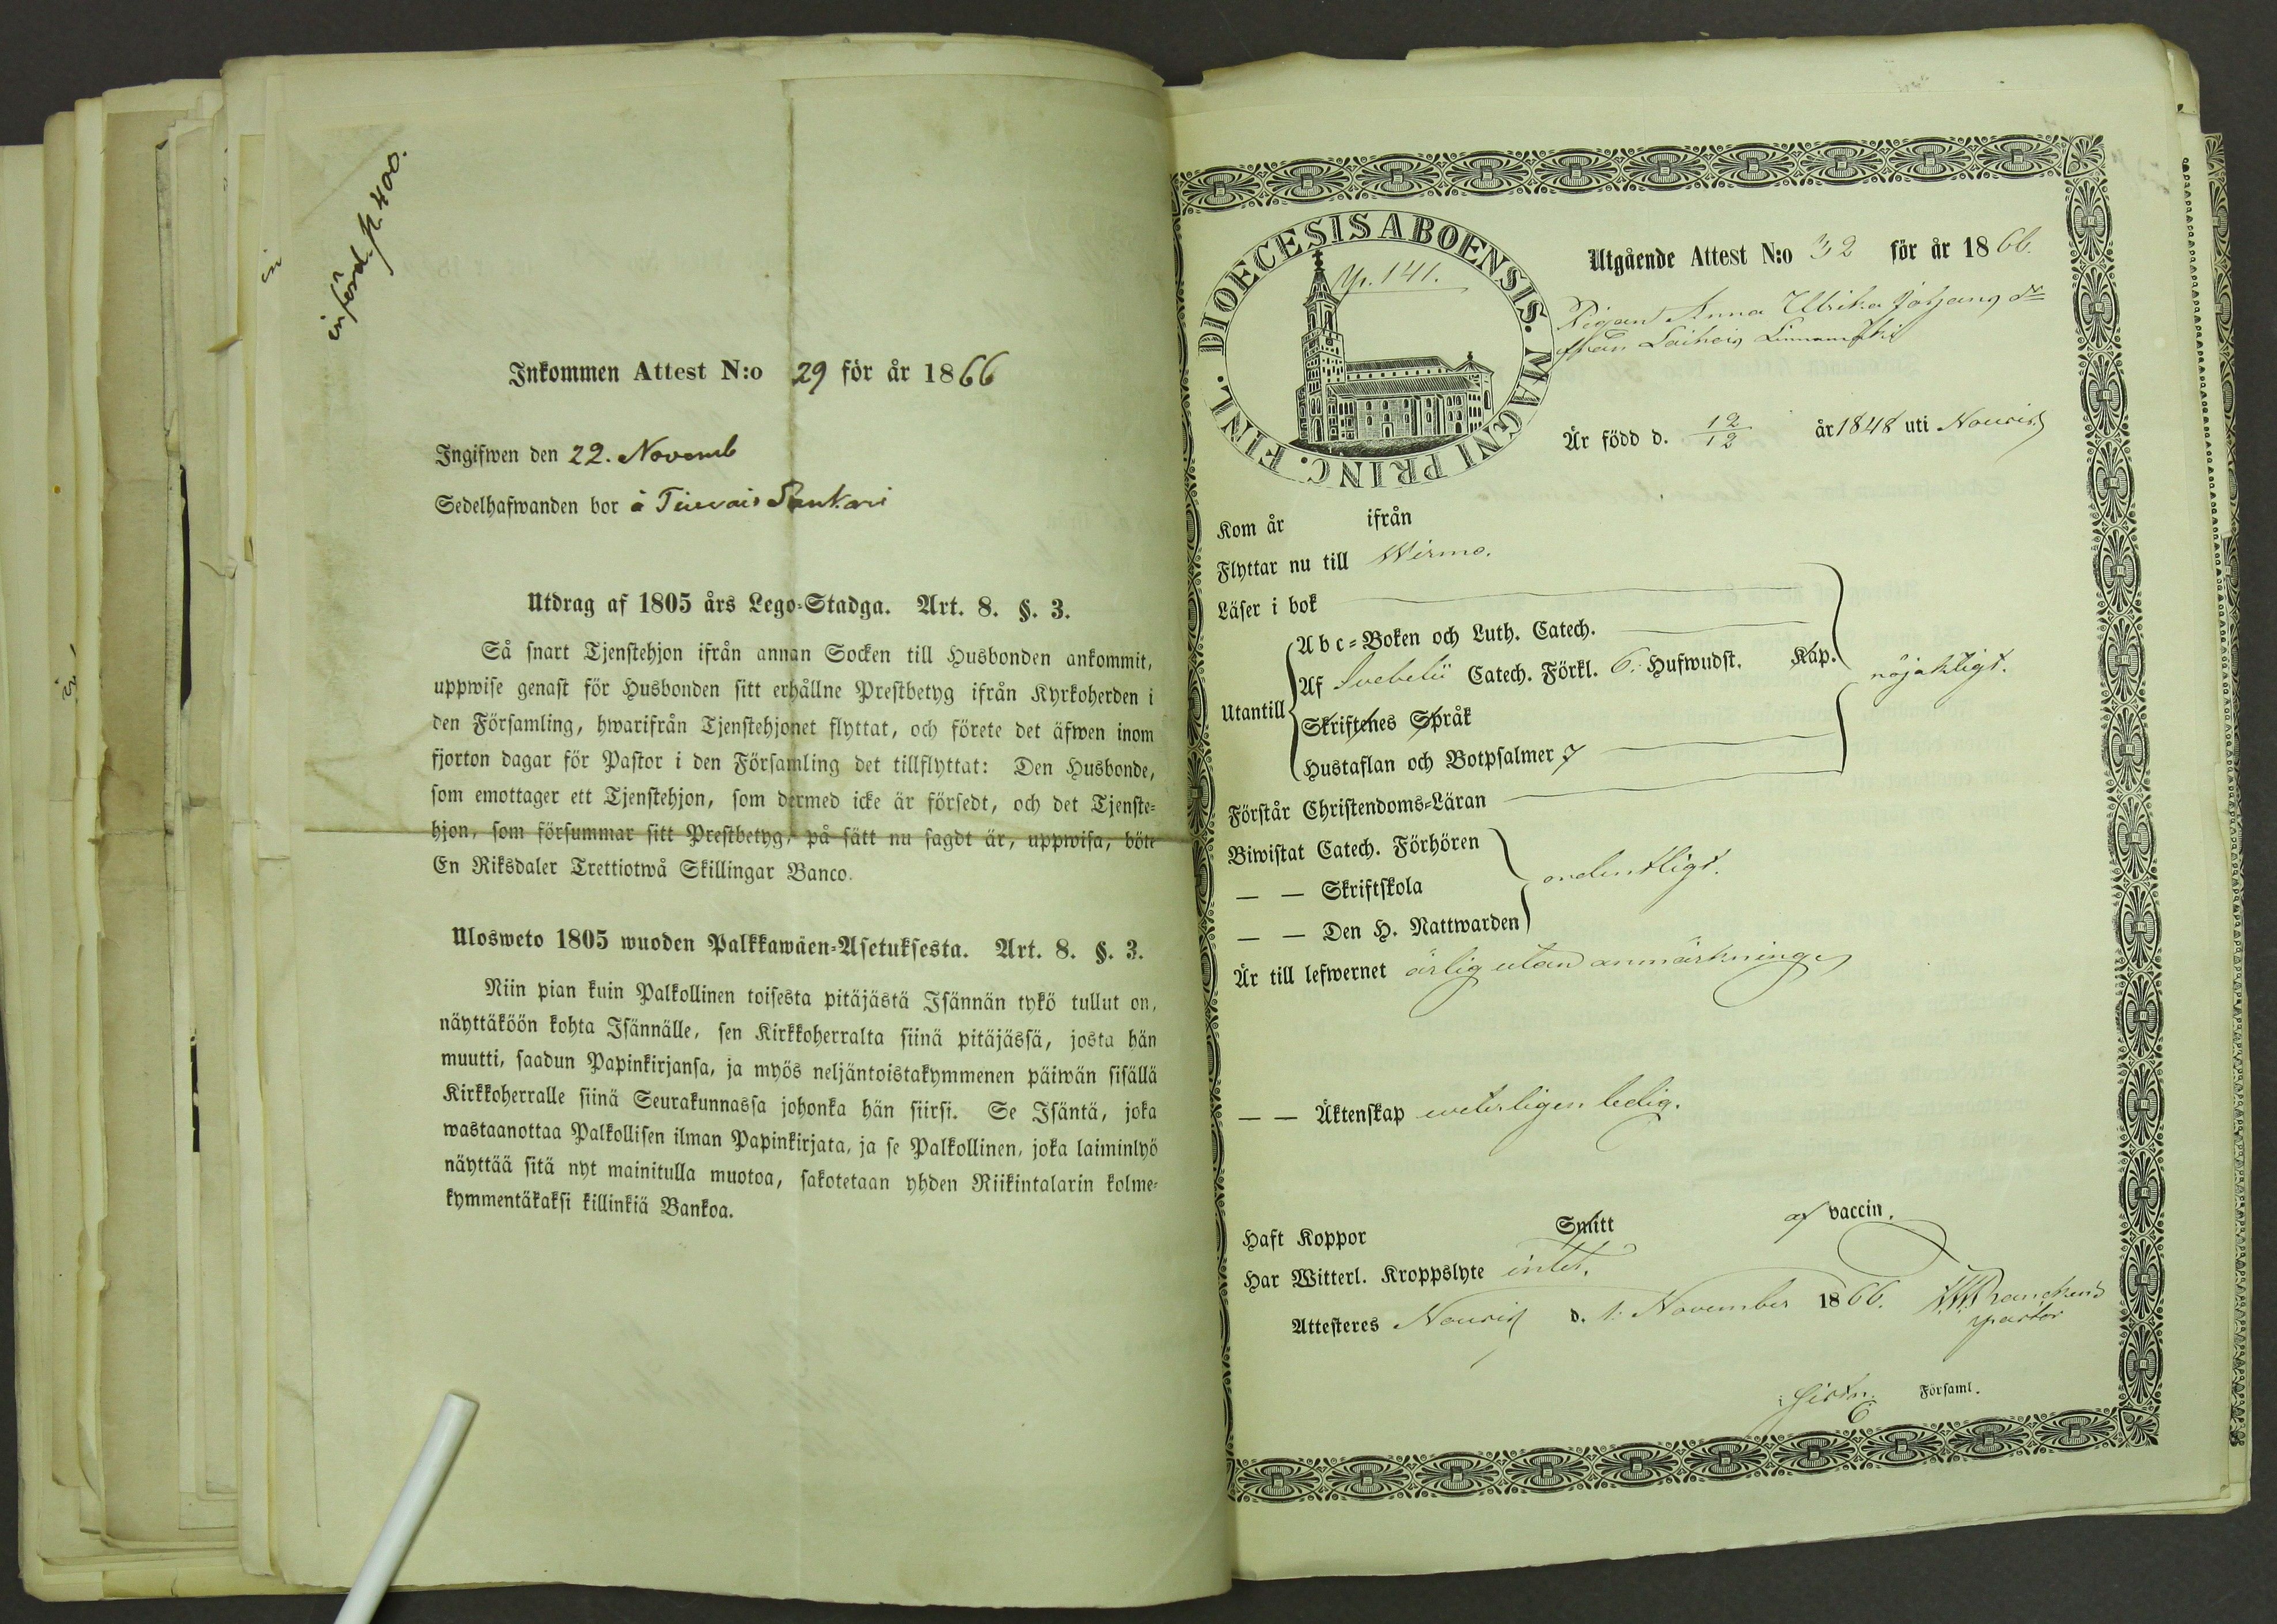 införd. p. 400.
Inkommen Attest N:o 29 för år 1866
Ingifwen den 22. Novemb
Sedelhafwanden bor å
Utdrag af 1805 års Lego-Stadga. Art. 8. §. 3.
Så snart Tjenstehjon ifrån annan Socken till Husbonden ankommit,
uppwise genast för Husbonden sitt erhållne Prestbetyg ifrån Kyrkoherden i
den Församling, hwarifrån Tjenstehjonet flyttat, och förete det äfwen inom
fjorton dagar för Pastor i den Församling det tillflyttat: Den Husbonde,
som emottager ett Tjenstehjon, som dermed icke är försedt, och det Tjenste-
hjon, som försummar sitt Prestbetyg, på sätt nu sagdt är, uppwisa, böte
En Riksdaler Trettiotwå Skillingar Banco.
Ulosweto 1805 wuoden Palkkawäen-Asetuksesta. Art. 8. §. 3.
Niin pian kuin Palkollinen toisesta pitäjästä Isännän tykö tullut on,
näyttäköön kohta Isännälle, sen Kirkkoherralta siinä pitäjässä, josta hän
muutti, saadun Papinkirjansa, ja myös neljäntoistakymmenen päiwän sisällä
Kirkkoherralle siinä Seurakunnassa johonka hän siirsi. Se Isäntä, joka
wastaanottaa Palkollisen ilman Papinkirjata, ja se Palkollinen, joka laiminlyö
näyttää sitä nyt mainitulla muotoa, sakotetaan yhden Riikintalarin kolme-
kymmentäkaksi killinkiä Bankoa.
DIOECESIS ABOENSIS. MAGNI PRINC. FINL.
p. 141.
Utgående Attest N:o 32 för år 1866.
Pigan Anna Ulrika Johans dr
från Laihois Linnamäki
Är född d. 12/12 år 1848 uti Nousis
Kom år ifrån
Flyttar nu till Wirmo.
Läser i bok
Utantill
Abc-Boken och Luth. Catech.
Af Svebelii Catech. Förkl. 6. Hufwudst. Kap.
Skriftenes Språk
Hustaflan och Botpsalmer 7
nöjaktigt.
Förstår Christendoms-Läran
Biwistat Catech. Förhören
— — Skriftskola
— — Den H. Nattwarden
ordentligt.
Är till lefwernet ärlig utan anmärkning
— — Äktenskap weterligen ledig.
Haft Koppor Smitt af vaccin.
Har Witterl. Kroppslyte intet.
Attesteres Nousis d. 1. November 1866.
pastor
Församl.